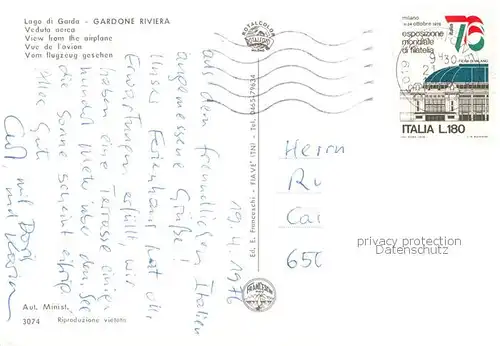 Lago di Garda - GARDONE RIVIERA
Veduta aerea
View from the airplane
Vue de l'avion
Vom flugzeug gesehen
19.4.1976
aus dem freundlichen Italien
angemessene Grüße!
Unser Ferienhaus hat alle
Erwartungen erfüllt, wir
haben eine Terrasse einige
hundert Meter über dem See
die Sonne scheint eifrig
Alles Gute
mit
und
Aut. Minist.
3074 Riproduzione vietata
Ed. E. Franceschi - FIAVE' (TN) - Tel. 0465/79634
ROTALCOLOR
FRANCESCHI
milano
14-24 ottobre 1976
esposizione
mondiale
di filatelia
italia 76
FIERA DI MILANO
ITALIA L.180
Herrn
Ru
Cai
650
privacy protection
Datenschutz